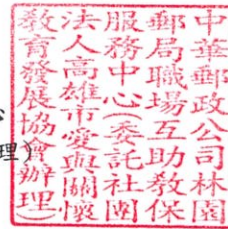 中華郵政公司林園
郵局職場互助教保
服務中心(委託社團
法人高雄市愛與關懷
教育發展協會辦理)
理)